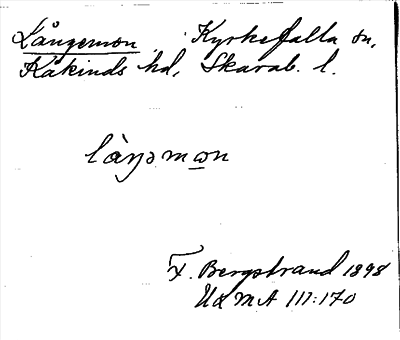 Långemon Kyrkefalla sn,
Kåkinds hd, Skarab. l.
làŋəmωn
F. Bergstrand 1898
UdmA 111:170